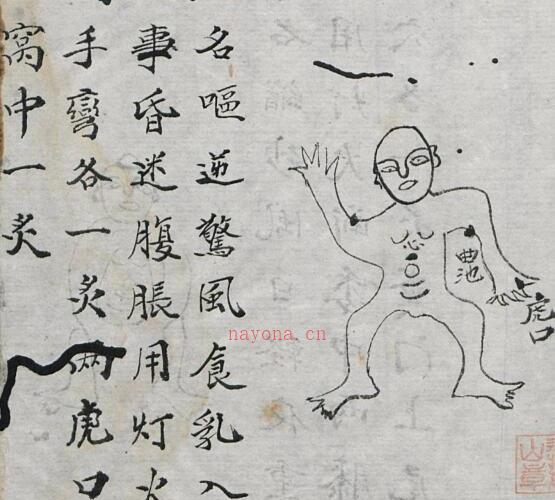 名嘔逆驚風食乳入
事昏迷腹脹用灯火
手彎各一灸兩虎口
窩中一灸
心
曲池
虎口
nayona.cn